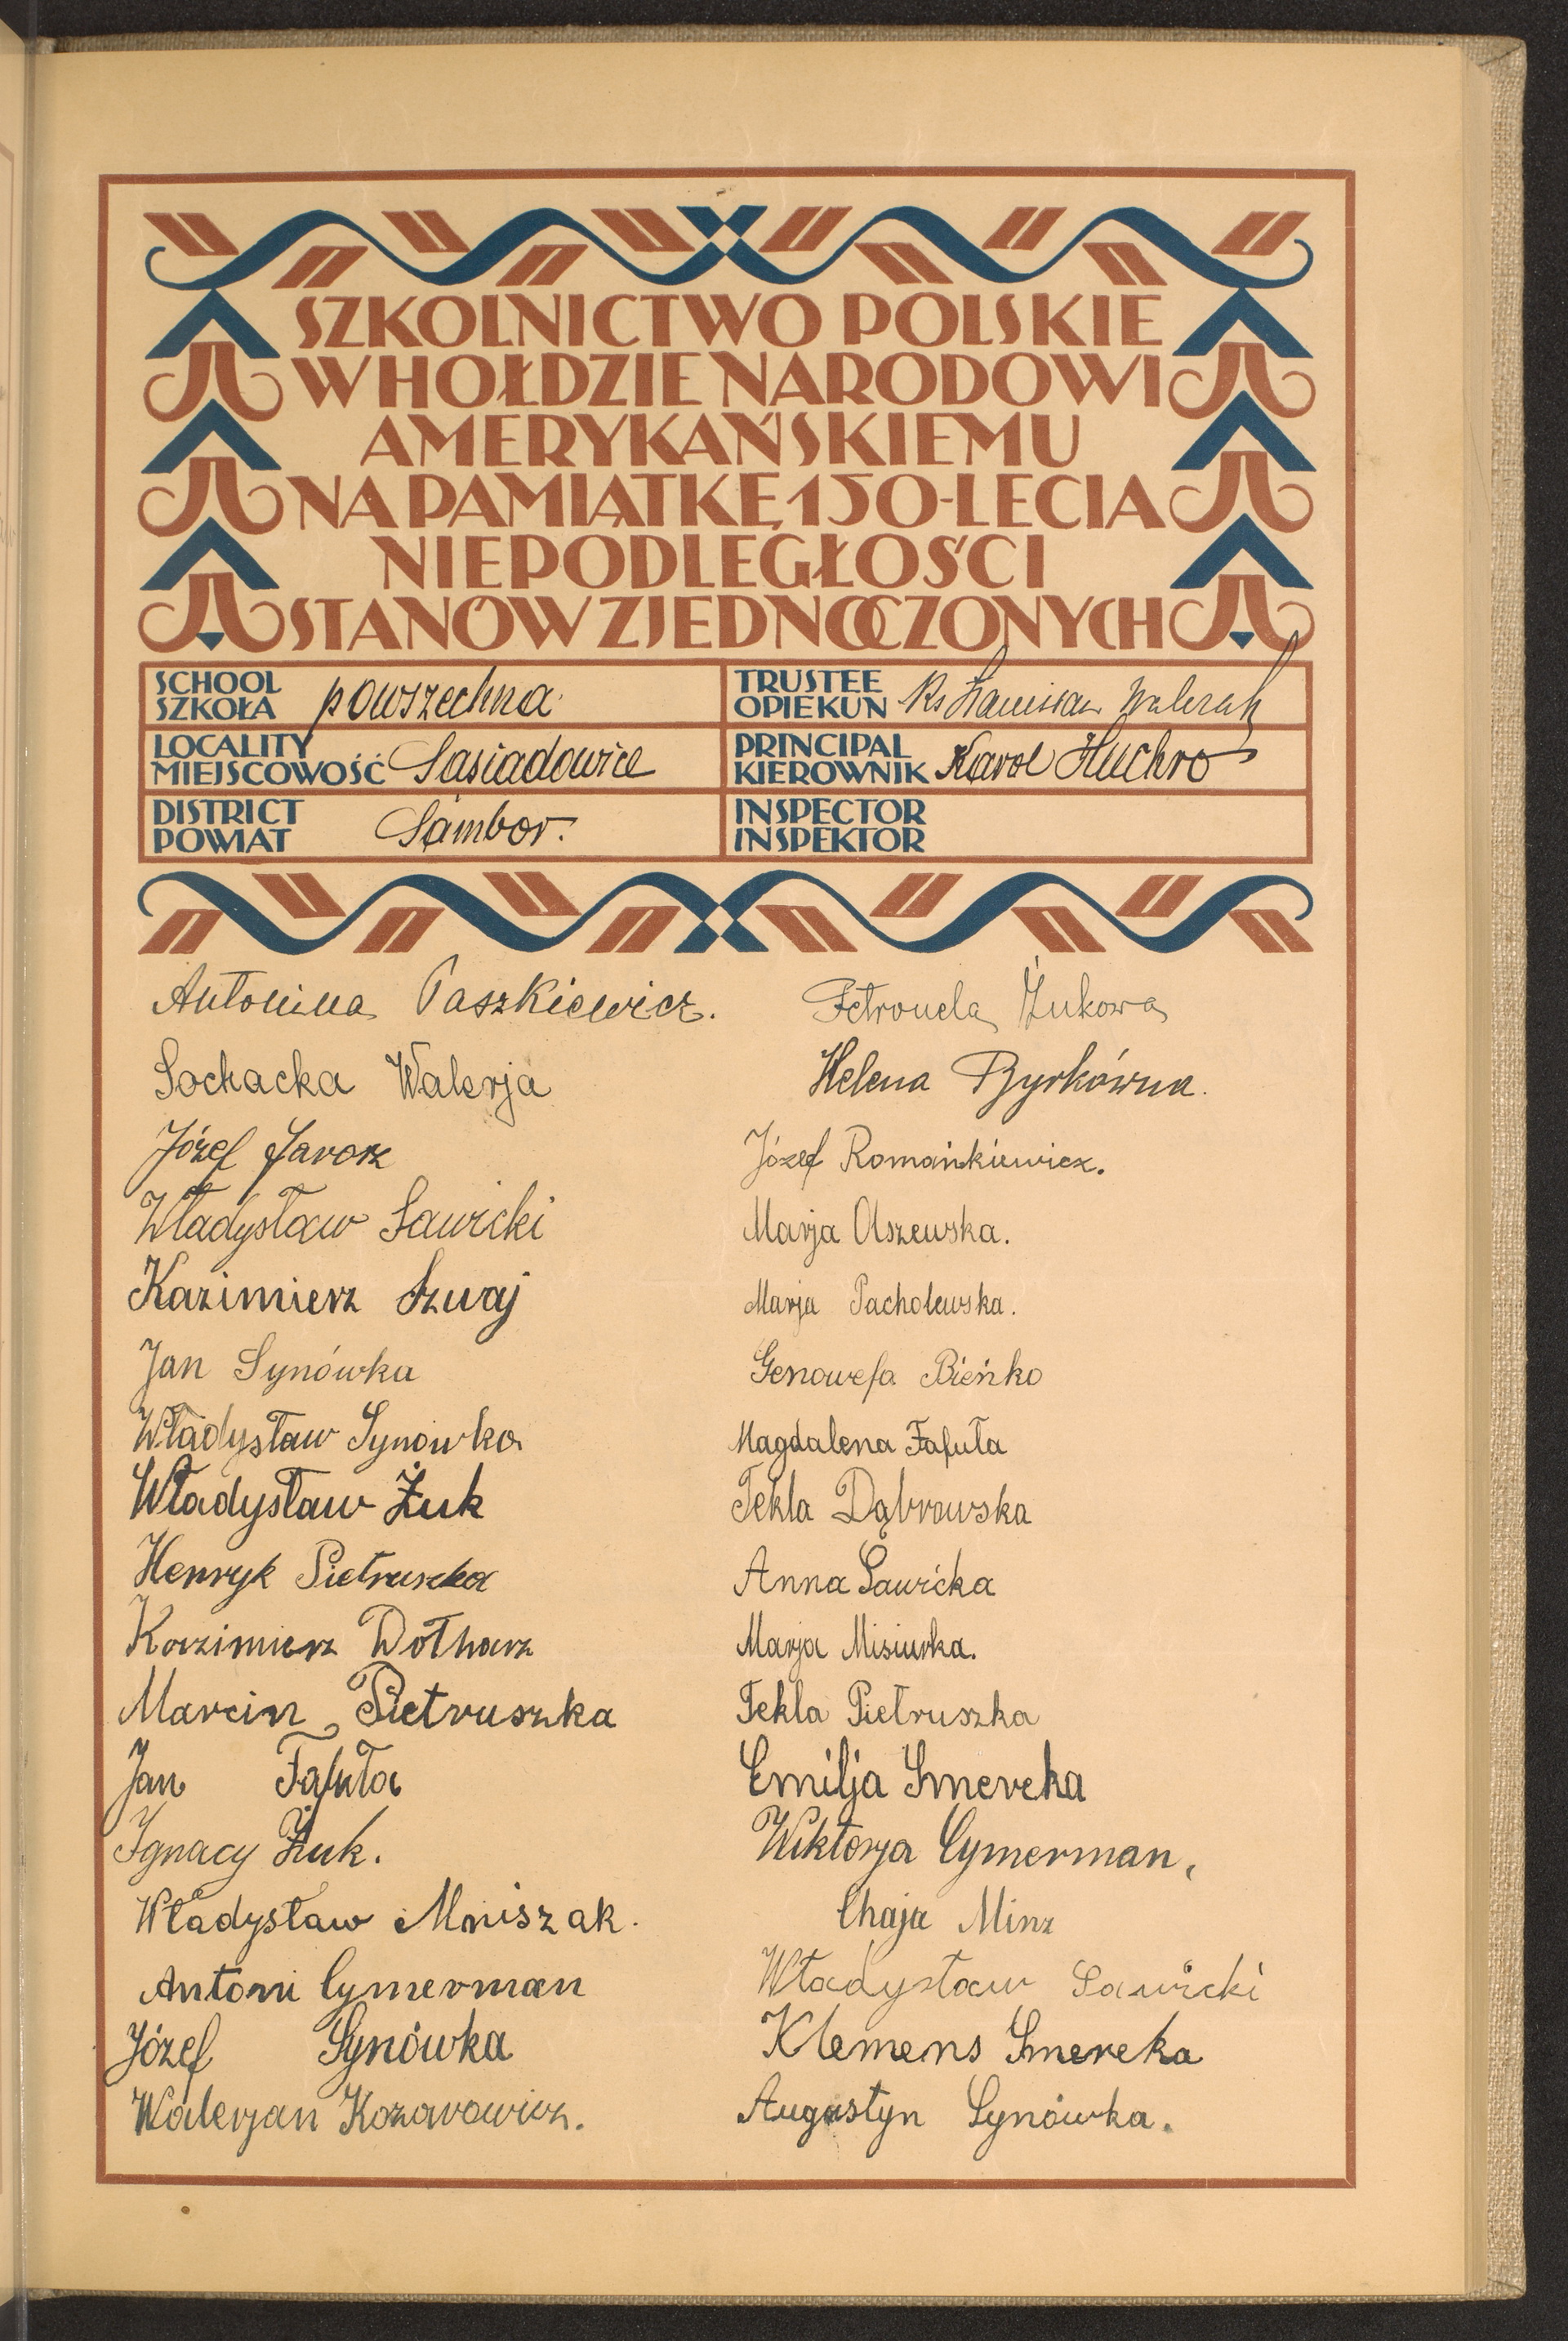 SZKOLNICTWO POLSKIE
W HOŁDZIE NARODOWI
AMERYKAŃSKIEMU
NA PAMIĄTKĘ 150-LECIA
NIEPODLEGŁOŚCI
STANÓW ZJEDNOCZONYCH
SCHOOL
SZKOŁA powszechna
TRUSTEE
OPIEKUN Ks Stanisław Walczak
LOCALITY
MIEJSCOWOŚĆ Sąsiadowice
PRINCIPAL
KIEROWNIK Karol Huchro
DISTRICT
POWIAT Sambor.
INSPECTOR
INSPEKTOR
Antonina Paszkiewicz.
Sochacka Walerja
Józef Jaworz
Władysław Sawicki
Kazimierz Szwaj
Jan Synówka
Władysław Synówka
Władysław Żuk
Henryk Pietruszka
Kazimierz Dołharz
Marcin Pietruszka
Jan Fafuła
Ignacy Żuk.
Władysław Mniszak.
Antoni Cymerman
Józef Synówka
Walerjan Kozarowicz.
Petronela Żukowa
Helena Byrkówna.
Józef Romańkiewicz.
Marja Olszewska.
Marja Pacholewska.
Genowefa Bieńko
Magdalena Fafuła
Tekla Dąbrowska
Anna Sawicka
Marja Misiurka.
Tekla Pietruszka
Emilja Smereka
Wiktorja Cymerman,
Chaja Minz
Władysław Sawicki
Klemens Smereka
Augustyn Synówka.